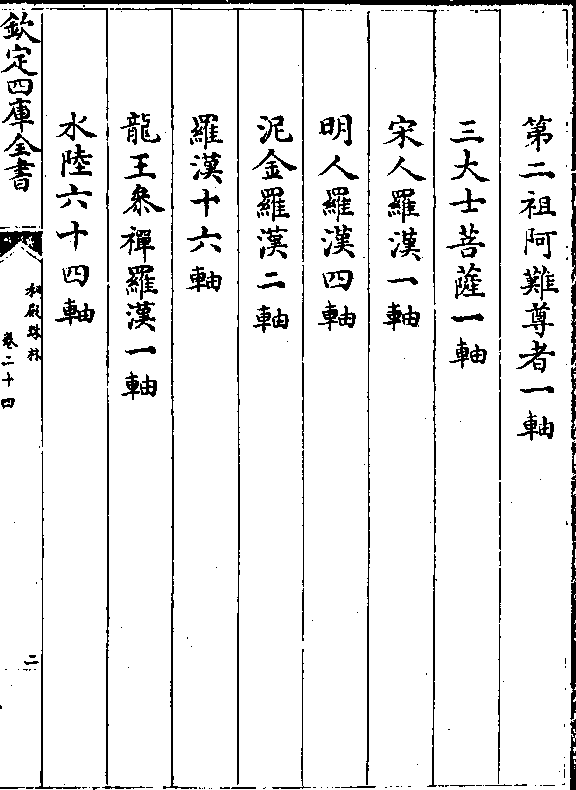 第二祖阿難尊者一軸
三大士菩薩一軸
宋人羅漢一軸
明人羅漢四軸
泥金羅漢二軸
羅漢十六軸
龍王叅禪羅漢一軸
水陸六十四軸
欽定四庫全書
秘殿珠林
卷二十四
二